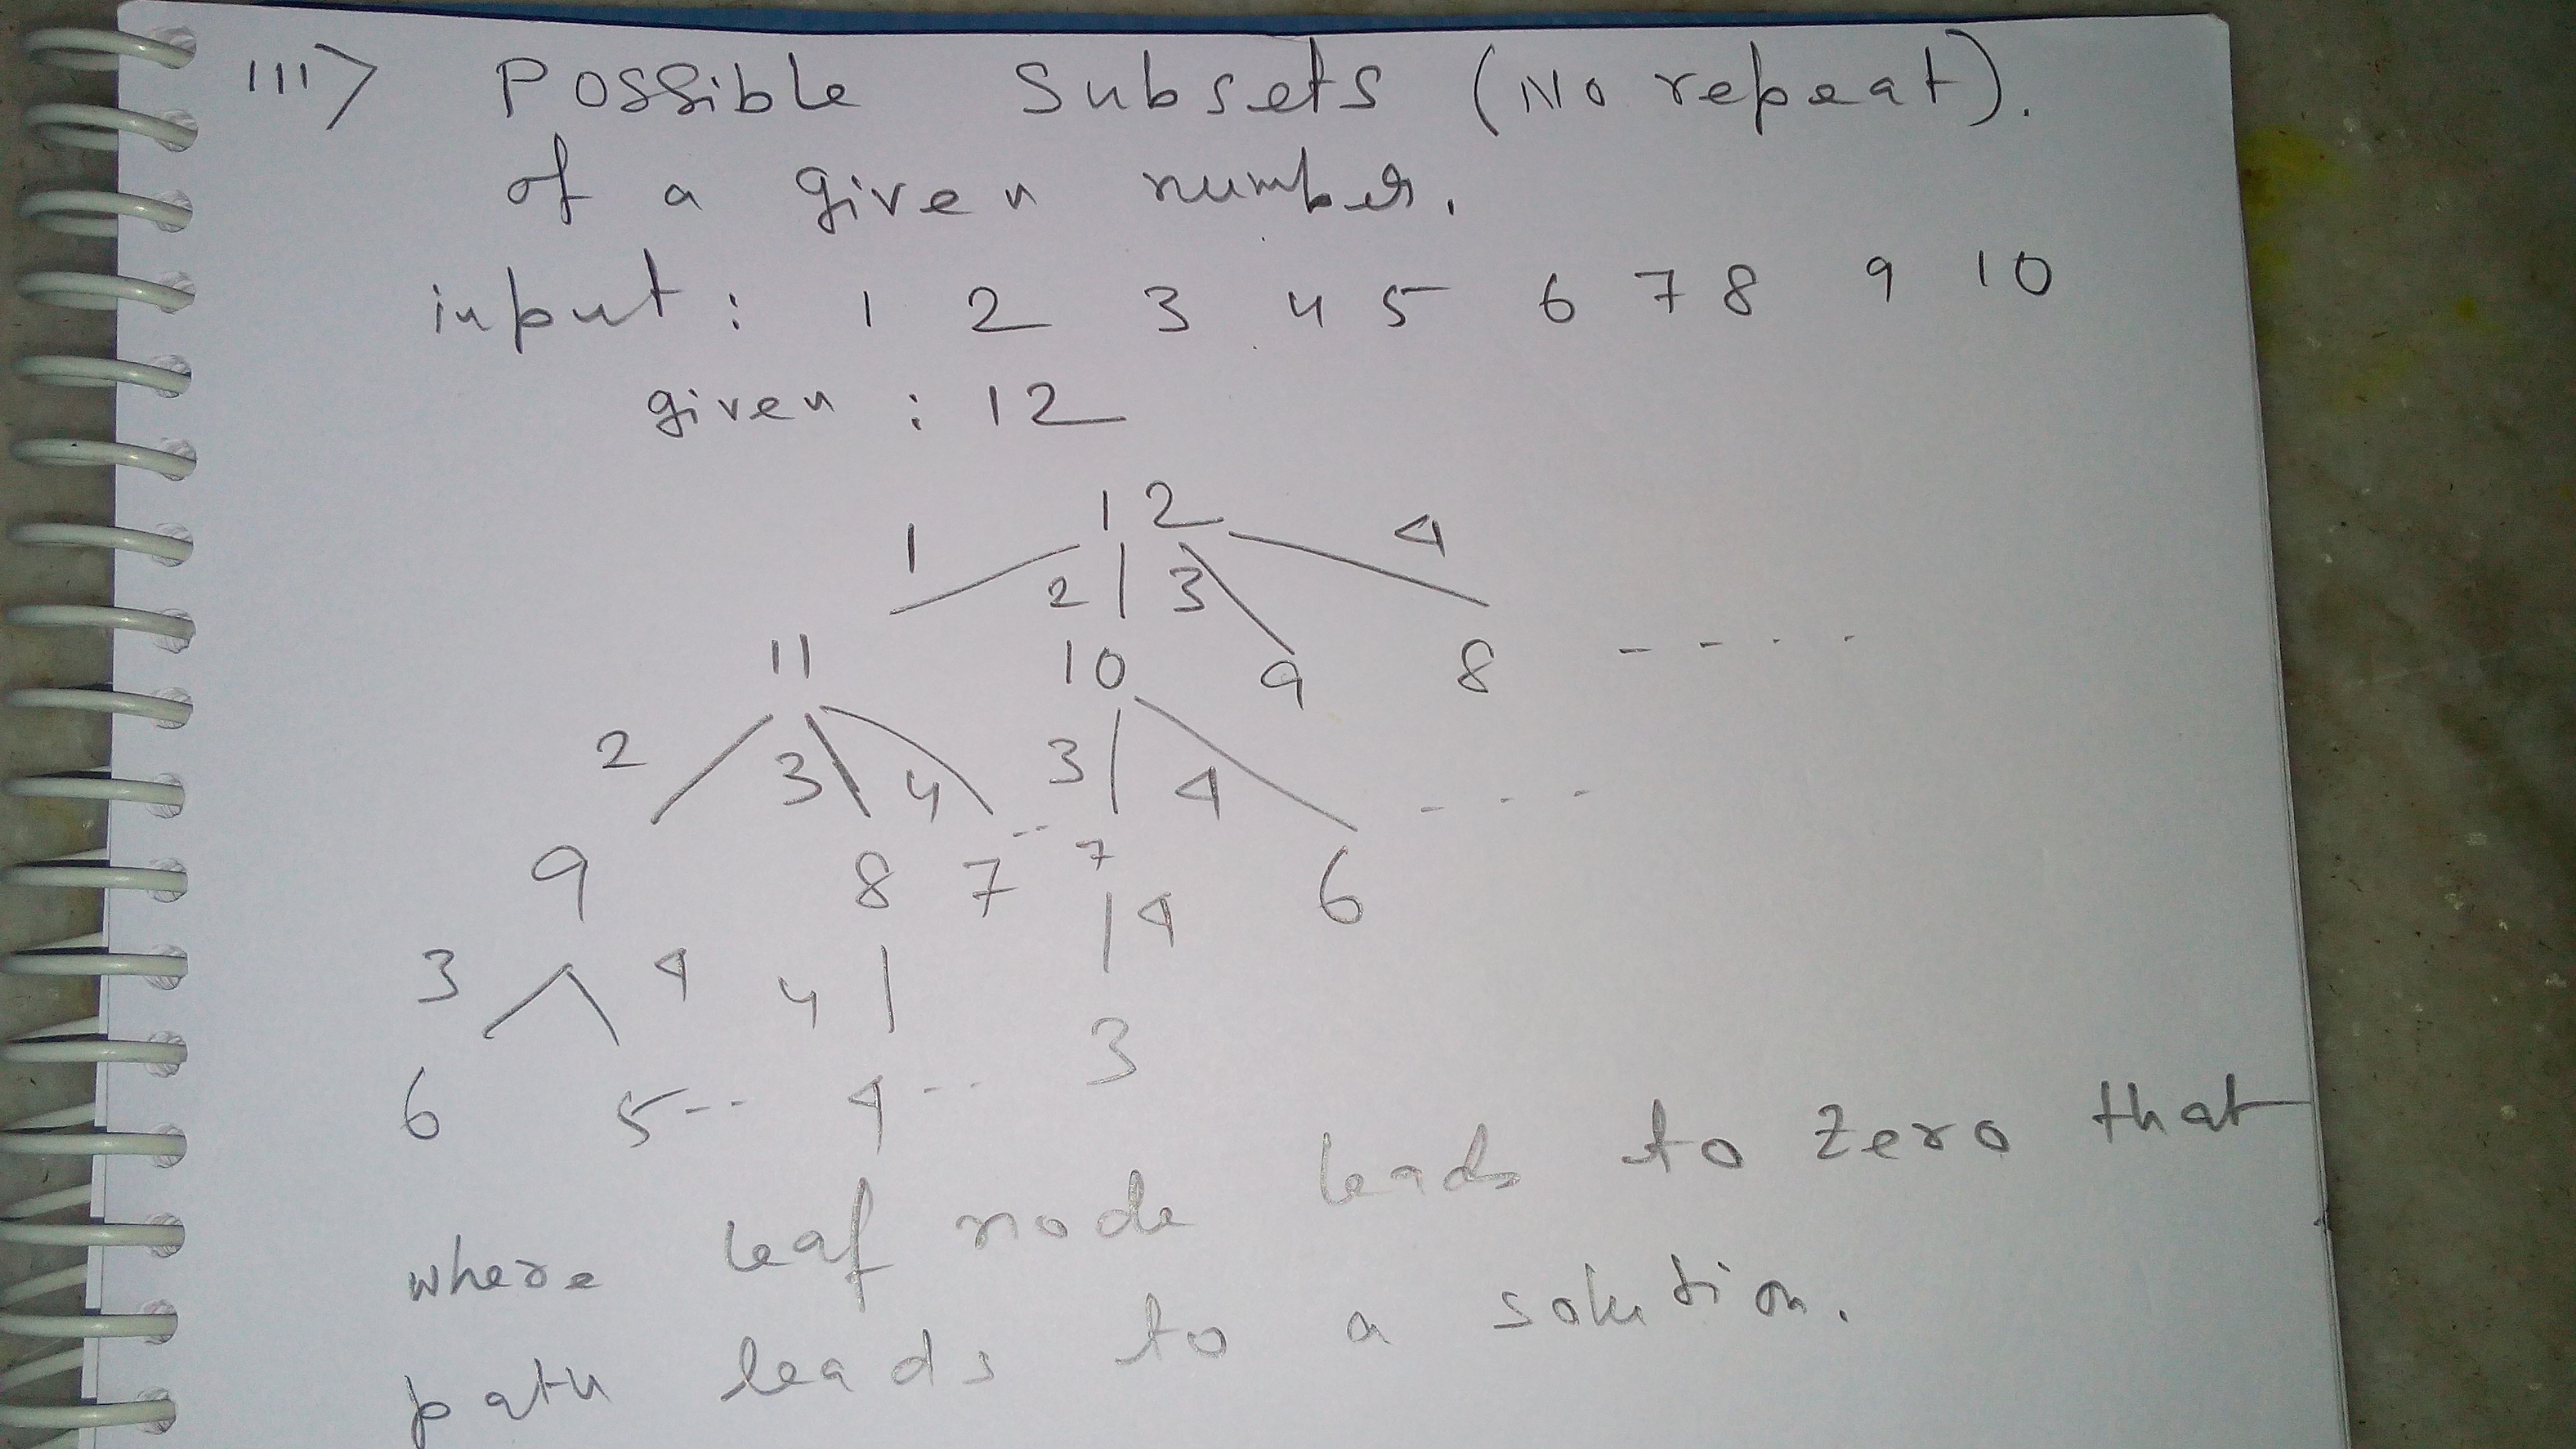 111> Possible Subsets (No repeat).
of a given number.
input : 1 2 3 4 5 6 7 8 9 10
given : 12
12
1 2 3 4
11 10 9 8 - - - -
2 3 4 3 4 - - -
9 8 7 -- 7 6
3 4 4 4
6 5-- 4 -- 3
where leaf node leads to zero that
path leads to a solution.